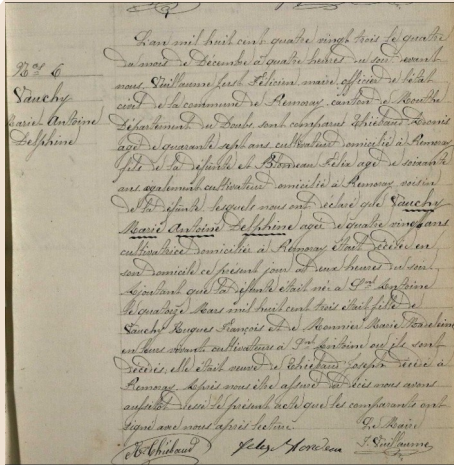 N° 6
Vauchy
Marie Antoine
Delphine
L'an mil huit cent quatre vingt trois le quatre
du mois de Décembre à quatre heures du soir devant
nous, Vuillaume Félicien maire, officier de l'état
civil de la commune de Remoray, canton de Mouthe
Département du Doubs, sont comparus Thiébaud
âgé de quarante sept ans cultivateur domicilié à Remoray
fils de la défunte et Blondeau Félix âgé de soixante
ans également cultivateur domicilié à Remoray voisin
de la défunte lesquels nous ont déclaré que Vauchy
Marie Antoine Delphine agée de quatre vingt ans
cultivatrice domiciliée à Remoray était décédée en
son domicile ce présent jour à deux heures du soir
Ajoutant que la défunte était née à St Antoine
le quatorze Mars mil huit cent trois était fille de
Vauchy Hugues François et de Monnier Marie Madeleine
en leurs vivant cultivateurs à St Antoine où ils sont
décédés, elle était veuve de Thiébaud Joseph décédé à
Remoray. Après nous être assuré du décès nous avons
aussitôt dressé le présent acte que les comparants ont
signé avec nous après lecture.
Le Maire
Thiébaud
Felix Blondeau
Vuillaume